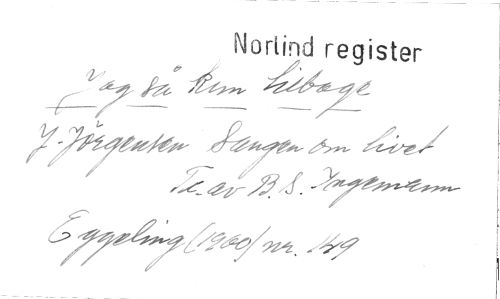 Norlind register
Jag så kun tilbage
J. Jörgensen Sangen om livet
Te. av B. S. Ingemann
Eggeling (1960) nr. 149